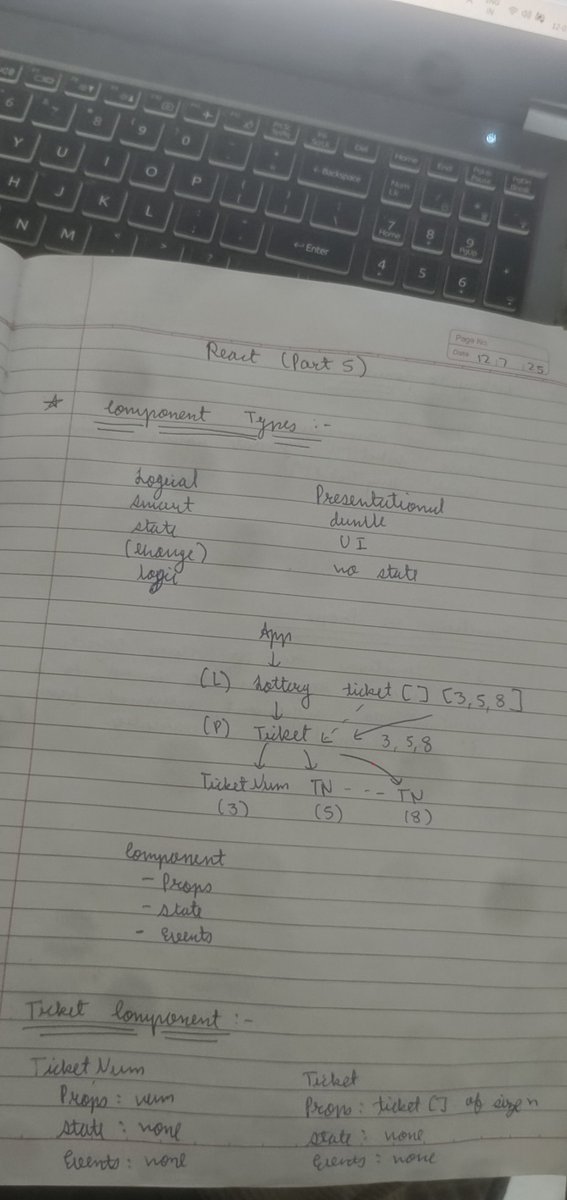 6 8 9 0
Y U I O P
← Backspace
Num Lk
Home End PgUp
H J K L
← Enter
7 Home 8 9 PgUp
N M
4 5 6
Page No
Date 12.7.25
React (Part 5)
☆ Component Types :-
Logical Presentational
smart dumb
state UI
(change) no state
logic
App
↓
(L) Lottery ticket [] [3,5,8]
↓
(P) Ticket 3,5,8
TicketNum TN - - - TN
(3) (5) (8)
Component
- Props
- state
- Events
Ticket Component :-
TicketNum Ticket
Props : num Props : ticket [] of size n
state : none state : none
Events : none Events : none